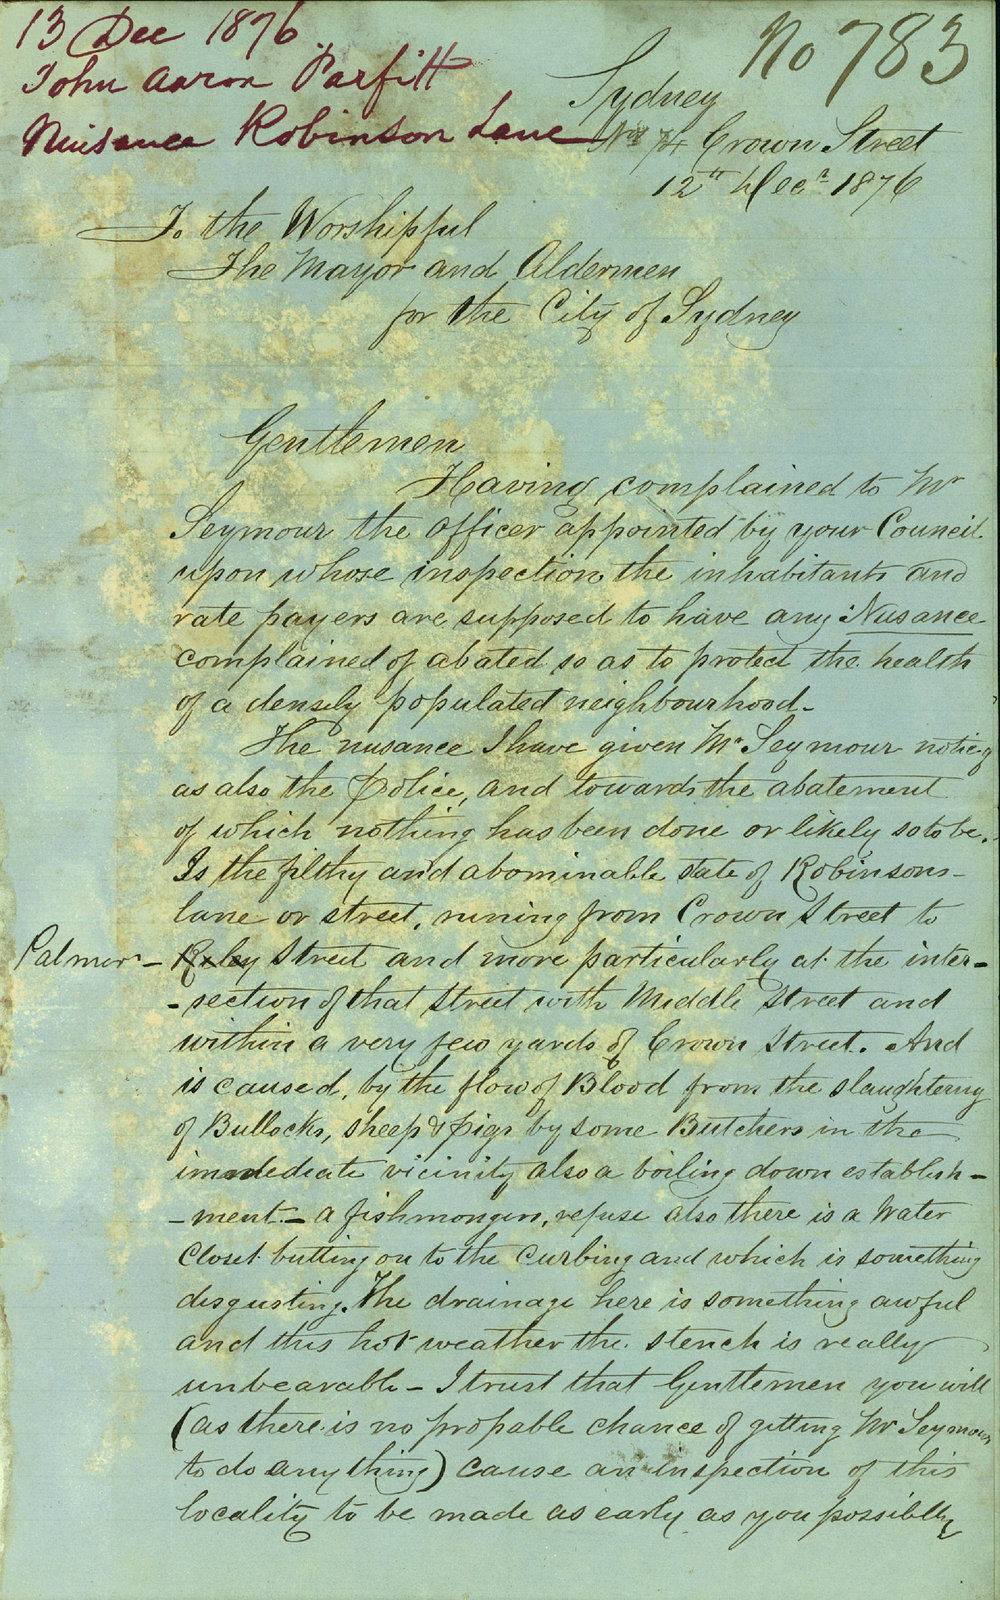 13 Dec 1876
John Aaron Parfitt
Nuisance Robinson Lane
No 783
Sydney
No 74 Crown Street
12th Decr 1876
To the Worshipful
The Mayor and Aldermen
for the City of Sydney
Gentlemen
Having complained to Mr
Seymour the officer appointed by your Council
upon whose inspection the inhabitants and
rate payers are supposed to have any Nusance
complained of abated so as to protect the health
of a densely populated neighbourhood-
The nusance I have given Mr Seymour notice of
as also the Police, and towards the abatement
of which nothing has been done or likely so to be.
Is the filthy and abominable state of Robinsons-
lane or street, runing from Crown Street to
Palmer - Riley Street and more particularly at the inter-
-section of that Street with Middle Street and
within a very few yards of Crown Street. And
is caused, by the flow of Blood from the slaughtering
of Bullocks, sheep & pigs by some Butchers in the
immediate vicinity also a boiling down establish-
-ment - a fishmongers, refuse also there is a Water
Closet butting on to the Curbing and which is something
disgusting. The drainage here is something awful
and this hot weather the stench is really
unbearable - I trust that Gentlemen you will
(as there is no propable chance of getting Mr Seymour
to do any thing) cause an inspection of this
locality to be made as early as you possiblly